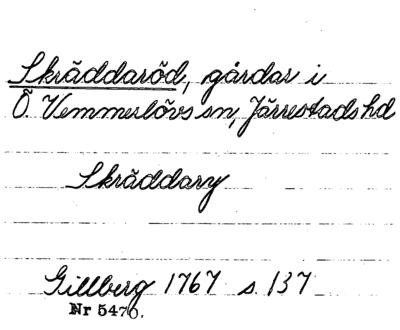 Skräddaröd, gårdar i
Ö. Vemmerlövs sn, Järrestads hd
Skräddary
Gillberg 1767 s 137
Nr 5470.